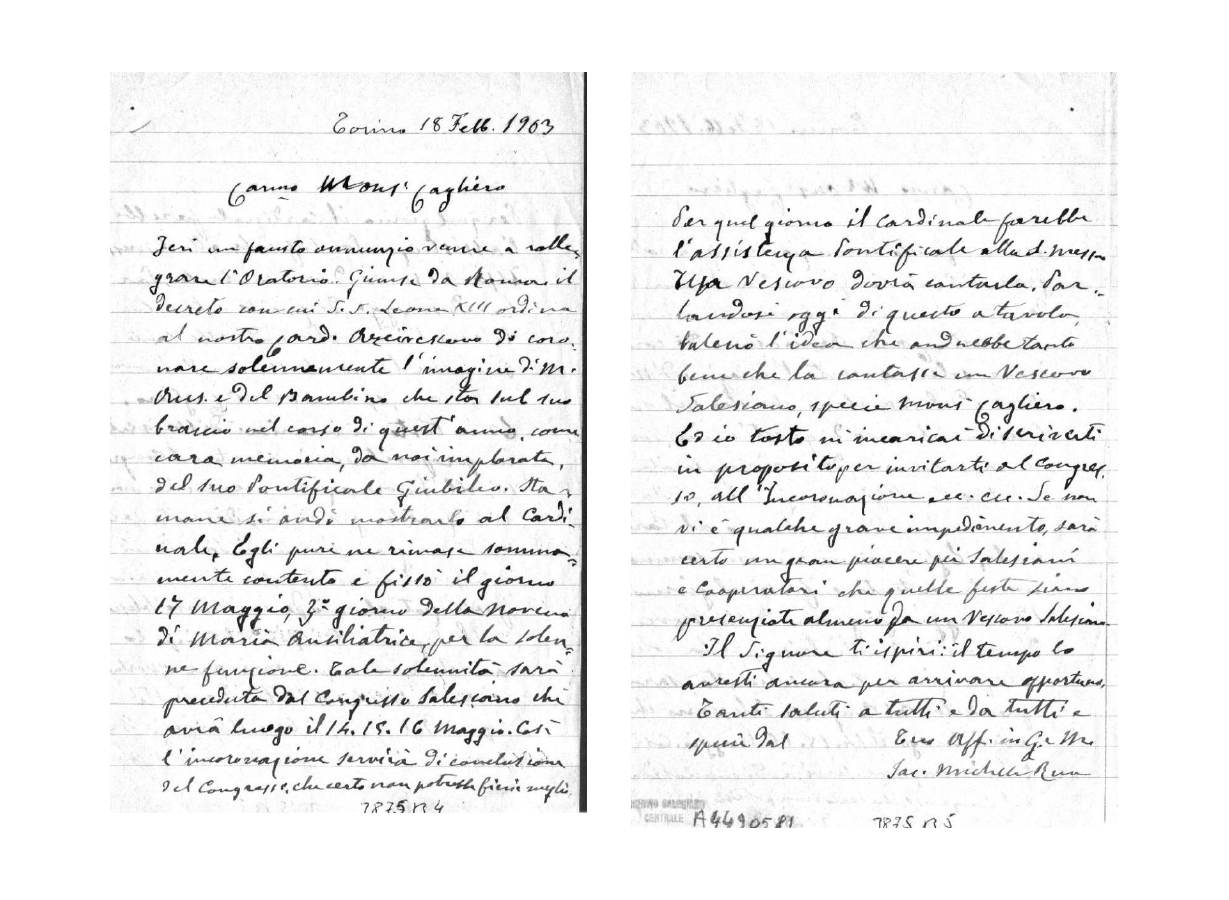 Torino 18 Febb. 1903
Carmo Mons. Cagliero
Jeri un fausto annunzio venne a ralle-
grare l'Oratorio. Giunse da Roma il
decreto con cui S. S. Leone XIII ordina
al nostro Card. Arcivescovo di coro-
nare solennemente l'imagine di M.
Aus. e del Bambino che sta sul suo
braccio nel corso di quest'anno, come
cara memoria, da noi implorata,
del suo Pontificale Giubileo. Sta-
mane si andò mostrarlo al Cardi-
nale, Egli pure ne rimase somma-
mente contento e fissò il giorno
17 Maggio, 3º giorno della Novena
di Maria Ausiliatrice, per la solen-
ne funzione. Tale solennità sarà
preceduta dal Congresso Salesiano che
avrà luogo il 14. 15. 16 Maggio. Così
l'incoronazione servirà di conclusione
del Congresso, che certo non potrebbe finir meglio.
7875 B 4
Per quel giorno il Cardinale farebbe
l'assistenza Pontificale alla S. Messa
Un Vescovo dovrà cantarla. Par-
landosi oggi di questo a tavola,
balenò l'idea che andrebbe tanto
bene che la cantasse un Vescovo
Salesiano, specie Mons. Cagliero.
Ed io tosto m'incaricai di scriverti
in proposito per invitarti al Congres-
so, all'Incoronazione ecc. ecc. Se non
vi è qualche grave impedimento, sarà
certo un gran piacere pei Salesiani
e Cooperatori che quelle feste siano
presenziate almeno da un Vescovo Salesiano.
Il Signore ti ispiri: il tempo lo
avresti ancora per arrivare opportuno.
Tanti saluti a tutti e da tutti e
specie dal Tuo Aff. in G. e M.
Sac. Michele Rua
ARCHIVIO SALESIANO
CENTRALE
A4490581
7875 B 5